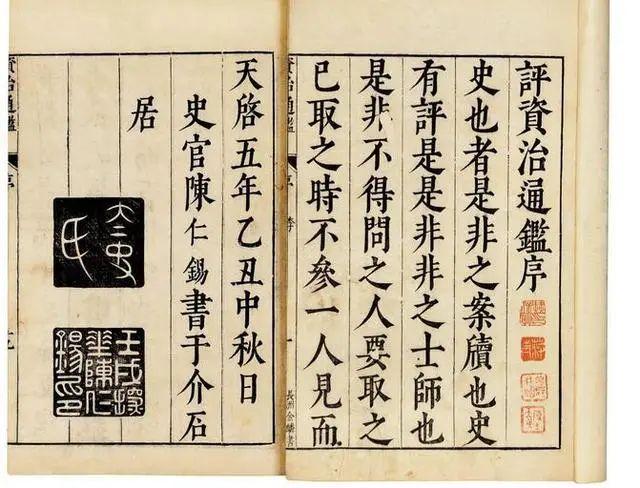 評資治通鑑序
史也者是非之案牘也史
有評是是非非之士師也
是非不得問之人要取之
已取之時不參一人見而
資治通鑑
序
天啓五年乙丑中秋日
史官陳仁錫書于介石
居
太史氏
資治通鑑
序